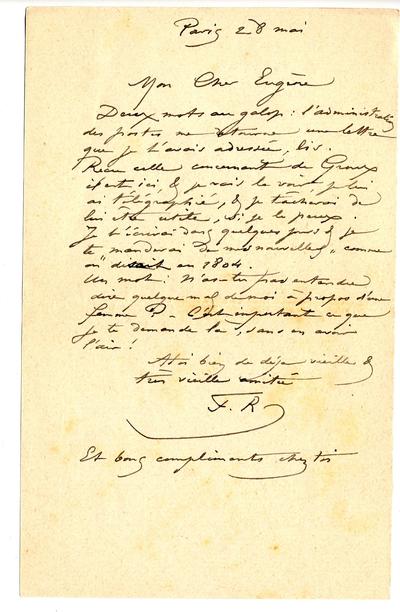 Paris 28 mai
Mon Cher Eugène
Deux mots au galop : l'administration
des postes me retourne une lettre
que je t'avais adressée, lis.
Reçu celle concernant de Groux
il est ici, & je vais le voir, je lui
ai télégraphié, & je tacherai de
lui être utile, si je le peux.
Je t'écrirai dans quelques jours & je
te manderai « de mes nouvelles » comme
on disait en 1804.
Un mot : N'as-tu pas entendu
dire quelque mal de moi à propos d'une
femme ? – C'est important ce que
je te demande là, sans en avoir
l'air !
A toi bien de déja vieille &
très vieille amitié
F. R
Et bons compliments chez toi